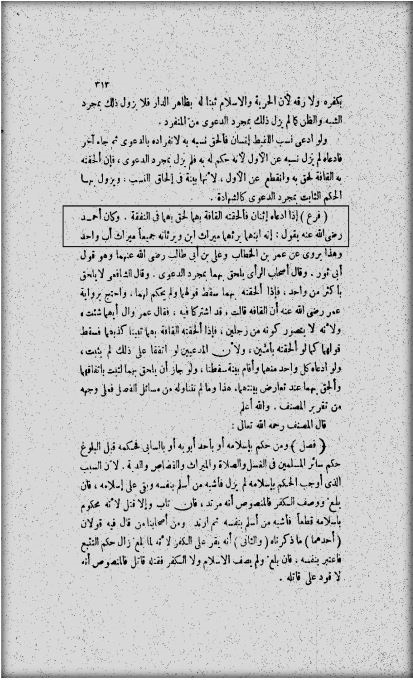 ٣١٣
بكفره ولا رقه لأن الحرية والاسلام ثبتا له بظاهر الدار فلا يزول ذلك بمجرد
الشبه والظن كما لم يزل ذلك بمجرد الدعوى من المنفرد .
ولو ادعى نسب اللقيط إنسان فألحق نسبه به لانفراده بالدعوى ثم جاء آخر
فادعاه لم يزل نسبه عن الأول لأنه حكم له به فلم يزل بمجرد الدعوى ، فإن ألحقته
به القافة لحق به وانقطع عن الأول ، لأنها بينة في إلحاق النسب . ويزول بها
الحكم الثابت بمجرد الدعوى كالشهادة .
( فرع ) إذا ادعاه إثنان فألحقته القافة بهما لحق بهما في النفقة . وكان أحمد
رضي الله عنه يقول : إنه ابنهما يرثهما ميراث ابن ويرثانه جميعاً ميراث أب واحد
وهذا يروى عن عمر بن الخطاب وعلى بن أبى طالب رضى الله عنهما وهو قول
أبى ثور . وقال أصحاب الرأى يلحق بهما بمجرد الدعوى . وقال الشافعى لا يلحق
بأكثر من واحد ، فإذا ألحقته بهما سقط قولهما ولم يحكم لهما ، واحتج برواية
عمر رضى الله عنه أن القافة قالت ، قد اشتركا فيه ، فقال عمر وال أيهما شئت ،
ولأنه لا يتصور كونه من رجلين ، فإذا ألحقته القافة بهما تبينا كذبهما فسقط
قولهما كما لو ألحقته بأمين ، ولأن المدعيين لو اتفقا على ذلك لم يثبت ،
ولو ادعاه كل واحد منهما وأقام بينة سقطتا ، ولو جاز أن يلحق بهما لثبت باتفاقهما
وألحق بهما عند تعارض بينتهما. هذا وما لم نتناوله من مسائل الفصل فعلى وجهه
من تقرير المصنف . والله أعلم
قال المصنف رحمه الله تعالى :
( فصل ) ومن حكم بإسلامه أو بأحد أبويه أو بالسابى فحكمه قبل البلوغ
حكم سائر المسلمين فى الغسل والصلاة والميراث والقصاص والدية . لأن السبب
الذى أوجب الحكم بإسلامه لم يزل فأشبه من أسلم بنفسه وبقى على إسلامه ، فان
بلغ ووصف الكفر فالمنصوص أنه مرتد ، فان تاب وإلا قتل لأنه محكوم
بإسلامه قطعاً فأشبه من أسلم بنفسه ثم ارتد ومن أصحابنا من قال فيه قولان
( أحدهما ) ما ذكرناه ( والثانى ) أنه يقر على الكفر لأنه لما بلغ زال حكم التبع
فاعتبر بنفسه ، فان بلغ ولم يصف الاسلام ولا الكفر فقتله قاتل فالمنصوص أنه
لا قود على قاتله .